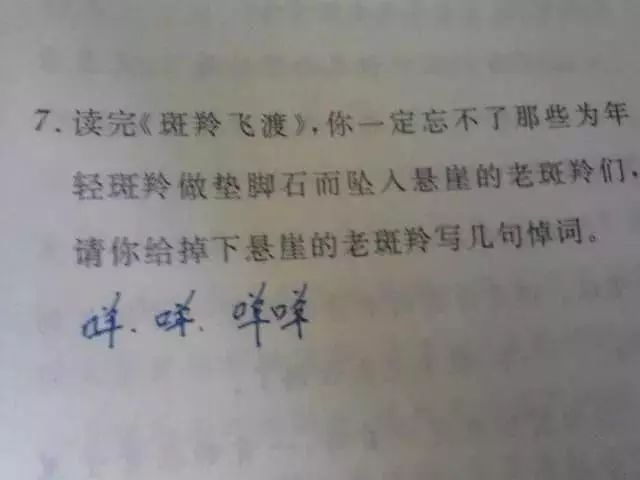 7. 读完《斑羚飞渡》，你一定忘不了那些为年
轻斑羚做垫脚石而坠入悬崖的老斑羚们，
请你给掉下悬崖的老斑羚写几句悼词。
咩. 咩. 咩咩